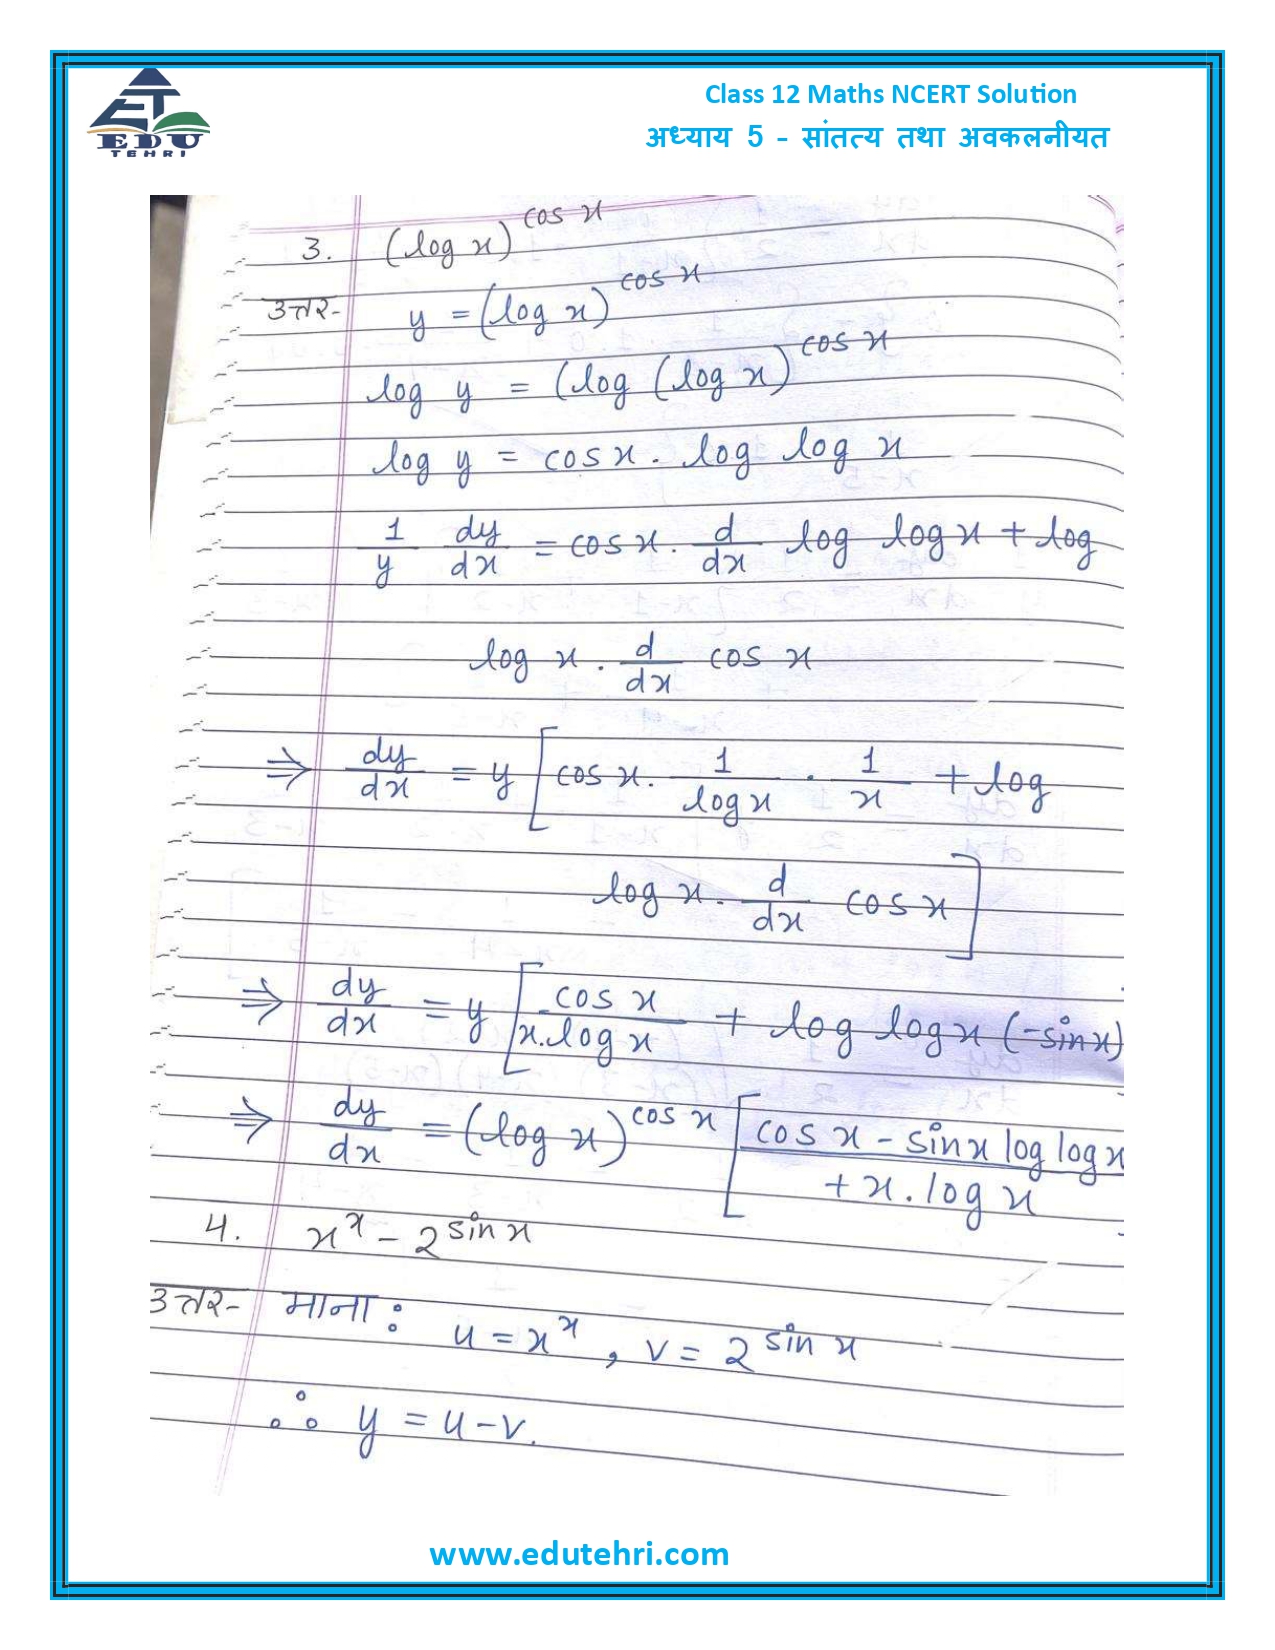 EDU
TEHRI
Class 12 Maths NCERT Solution
अध्याय 5 - सांतत्य तथा अवकलनीयत
3. (log x)^cos x
उत्तर- y = (log x)^cos x
log y = (log (log x)^cos x
log y = cos x . log log x
1/y dy/dx = cos x . d/dx log log x + log
log x . d/dx cos x
⇒ dy/dx = y [cos x . 1/log x . 1/x + log
log x . d/dx cos x]
⇒ dy/dx = y [cos x/x.log x + log log x (-sin x)
⇒ dy/dx = (log x)^cos x [cos x - sin x log log x / + x . log x
4. x^x - 2^sin x
उत्तर- माना : u = x^x , v = 2^sin x
∴ y = u - v.
www.edutehri.com